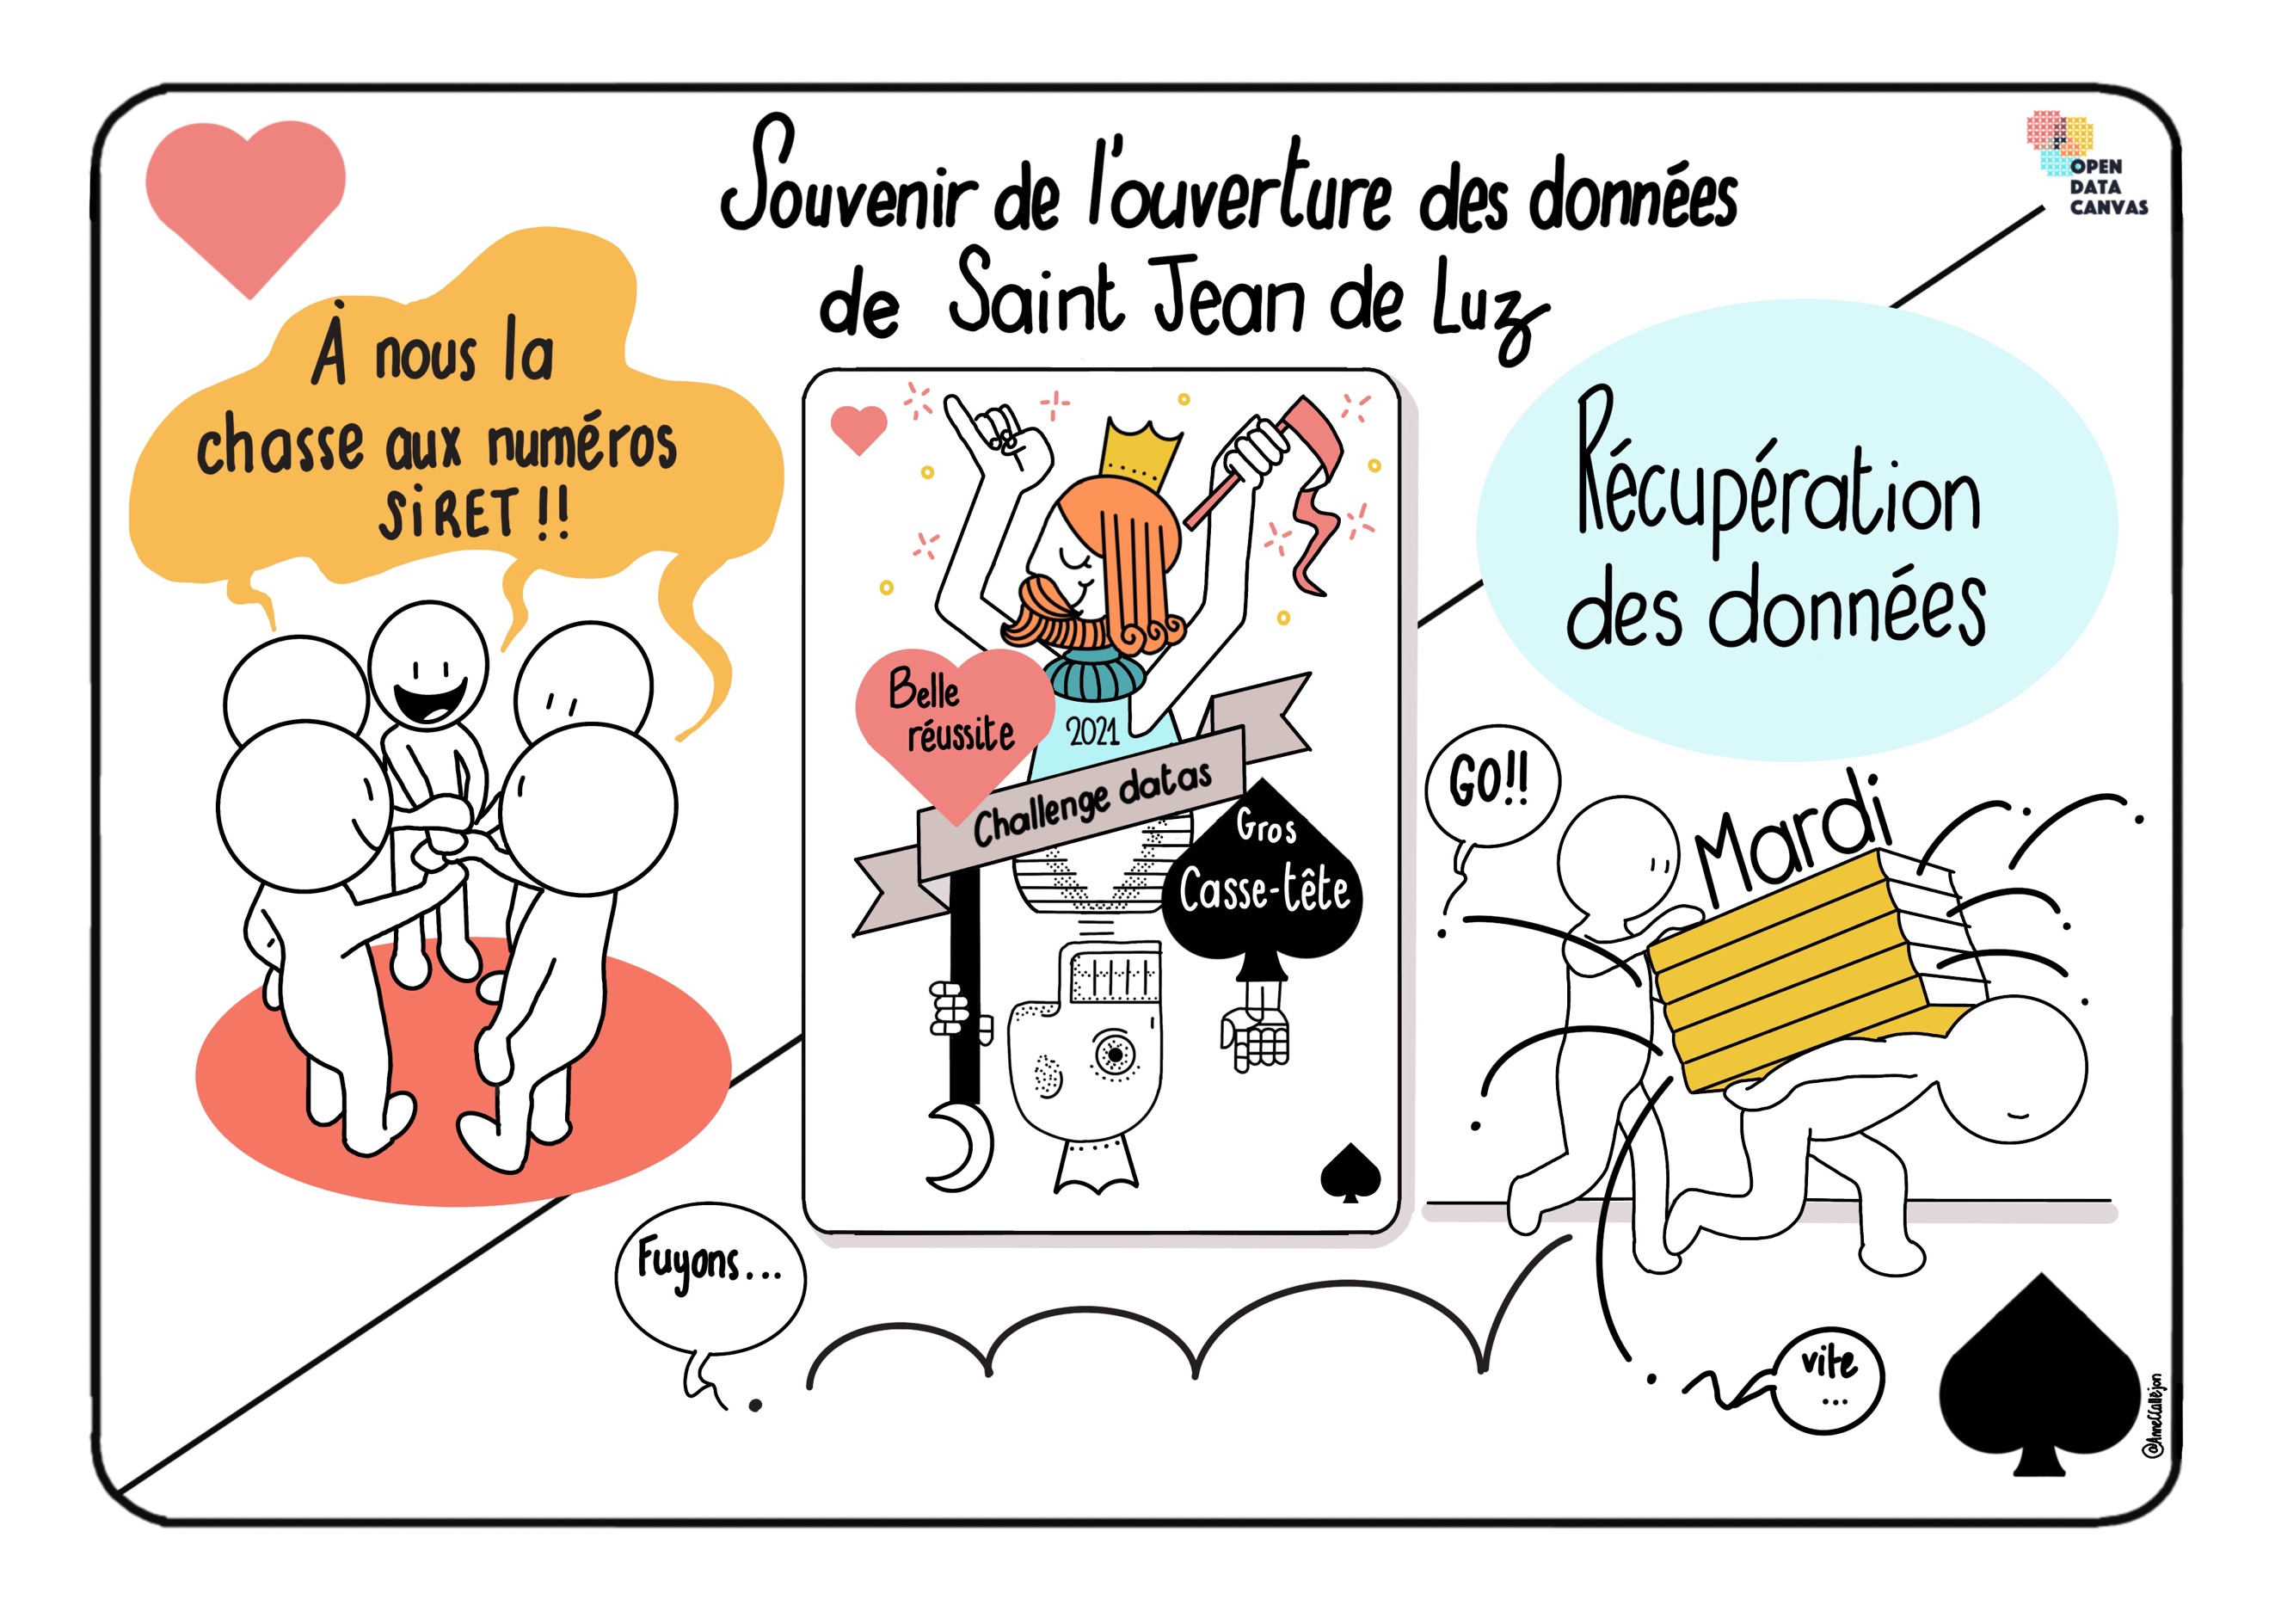 Souvenir de l'ouverture des données
de Saint Jean de Luz
OPEN
DATA
CANVAS
À nous la
chasse aux numéros
SiRET !!
Belle
réussite
2021
Challenge datas
Gros
Casse-tête
Récupération
des données
GO!!
Mardi
Fuyons...
vite
...
@AnneCCallejon